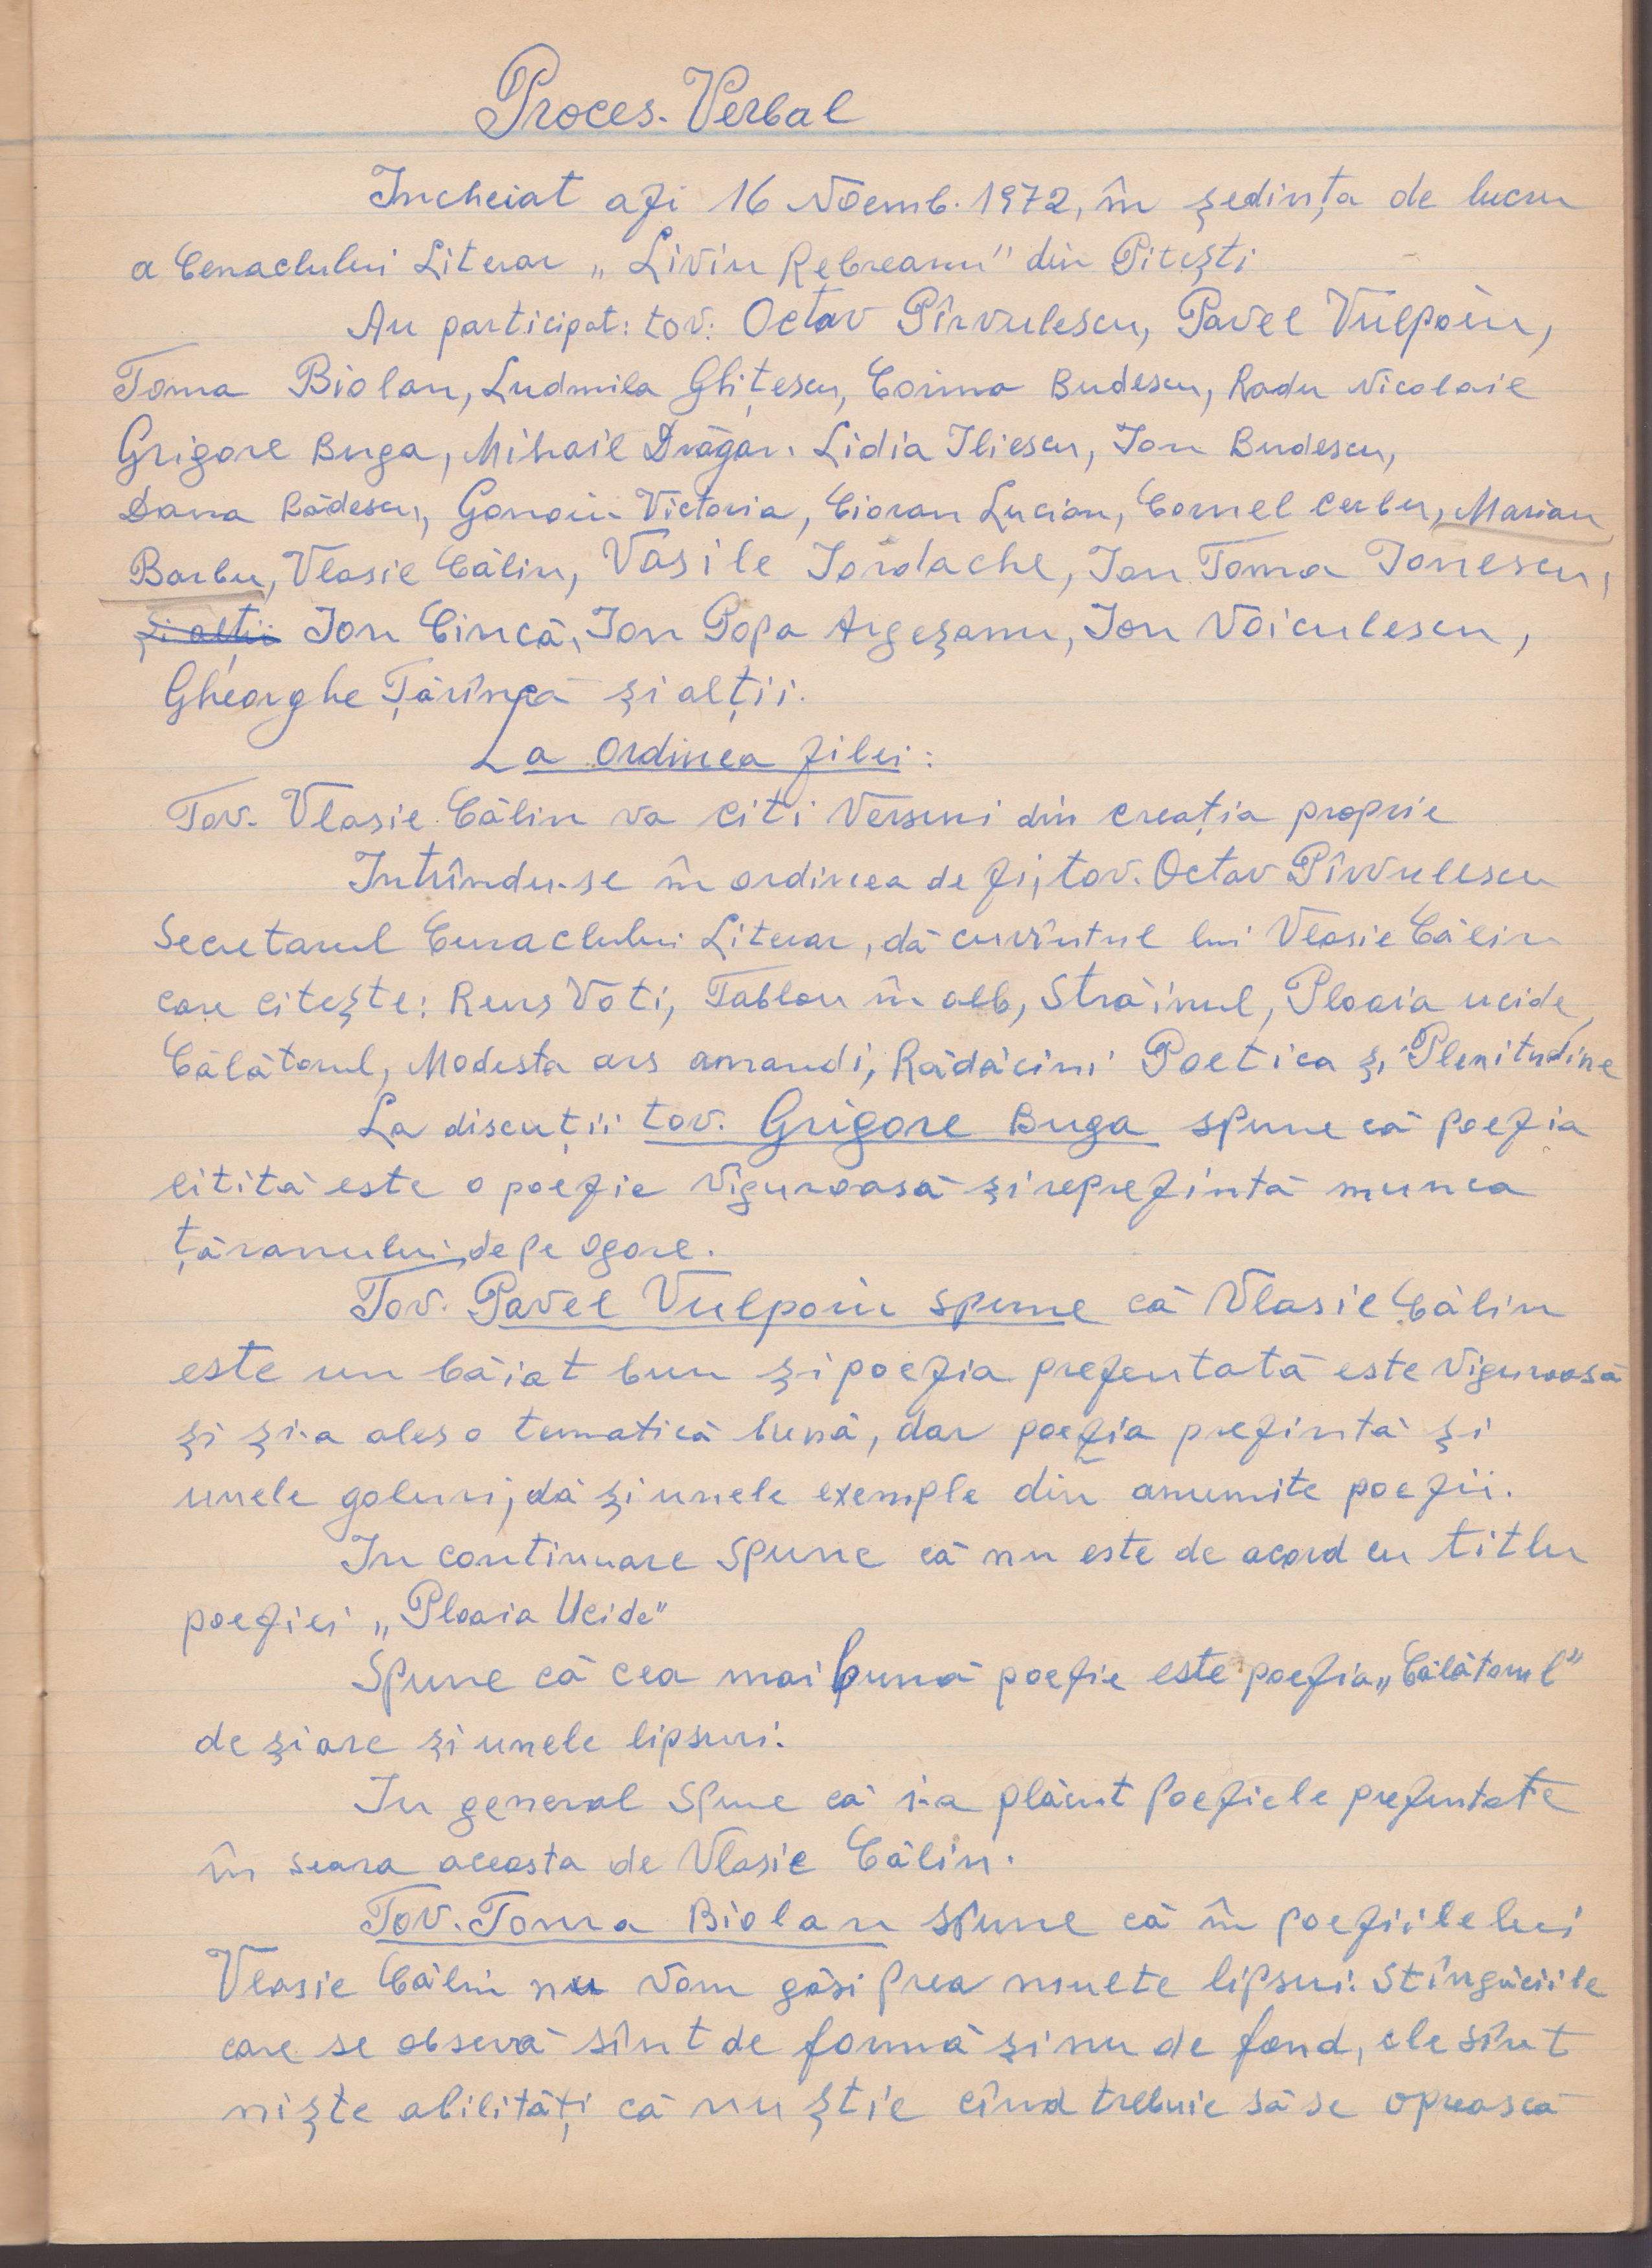 Proces-Verbal
Incheiat azi 16 Noemb. 1972, în ședința de lucru
a Cenaclului Literar „Liviu Rebreanu" din Pitești
Au participat: tov. Octav Pîrvulescu, Pavel Vulpoiu,
Toma Biolan, Ludmila Ghițescu, Corina Budescu, Radu Nicolaie
Grigore Buga, Mihail Drăgan. Lidia Iliescu, Ion Budescu,
Dana Rădescu, Gonoiu Victoria, Cioran Lucian, Cornel Cerbu, Marian
Barbu, Vlasie Călin, Vasile Iordache, Ion Toma Ionescu,
și alții Ion Cincă, Ion Popa Argeșanu, Ion Voiculescu,
Gheorghe Țărînță și alții.
La Ordinea zilei:
Tov. Vlasie Călin va citi versuri din creația proprie
Intrîndu-se în ordinea de zi, tov. Octav Pîrvulescu
Secretarul Cenaclului Literar, dă cuvîntul lui Vlasie Călin
care citește: Reus Voti, Tablou în alb, Străinul, Ploaia ucide,
Călătorul, Modesta ars amandi, Rădăcini Poetica și Plenitudine
La discuții tov. Grigore Buga spune că poezia
citită este o poezie viguroasă și reprezintă munca
țăranului de pe ogore.
Tov. Pavel Vulpoiu spune că Vlasie Călin
este un băiat bun și poezia prezentată este viguroasă
și și-a ales o tematică bună, dar poezia prezintă și
unele goluri, dă și unele exemple din anumite poezii.
In continuare spune că nu este de acord cu titlu
poeziei „Ploaia Ucide"
Spune că cea mai bună poezie este poezia „Călătorul"
de și are și unele lipsuri.
In general spune că i-a plăcut poeziele prezentate
în seara aceasta de Vlasie Călin.
Tov. Toma Biolan spune că în poeziile lui
Vlasie Călin nu vom găsi prea multe lipsuri. Stîngăciile
care se obsevă sînt de formă și nu de fond, ele sînt
niște abilități că nu știe cînd trebuie să se oprească